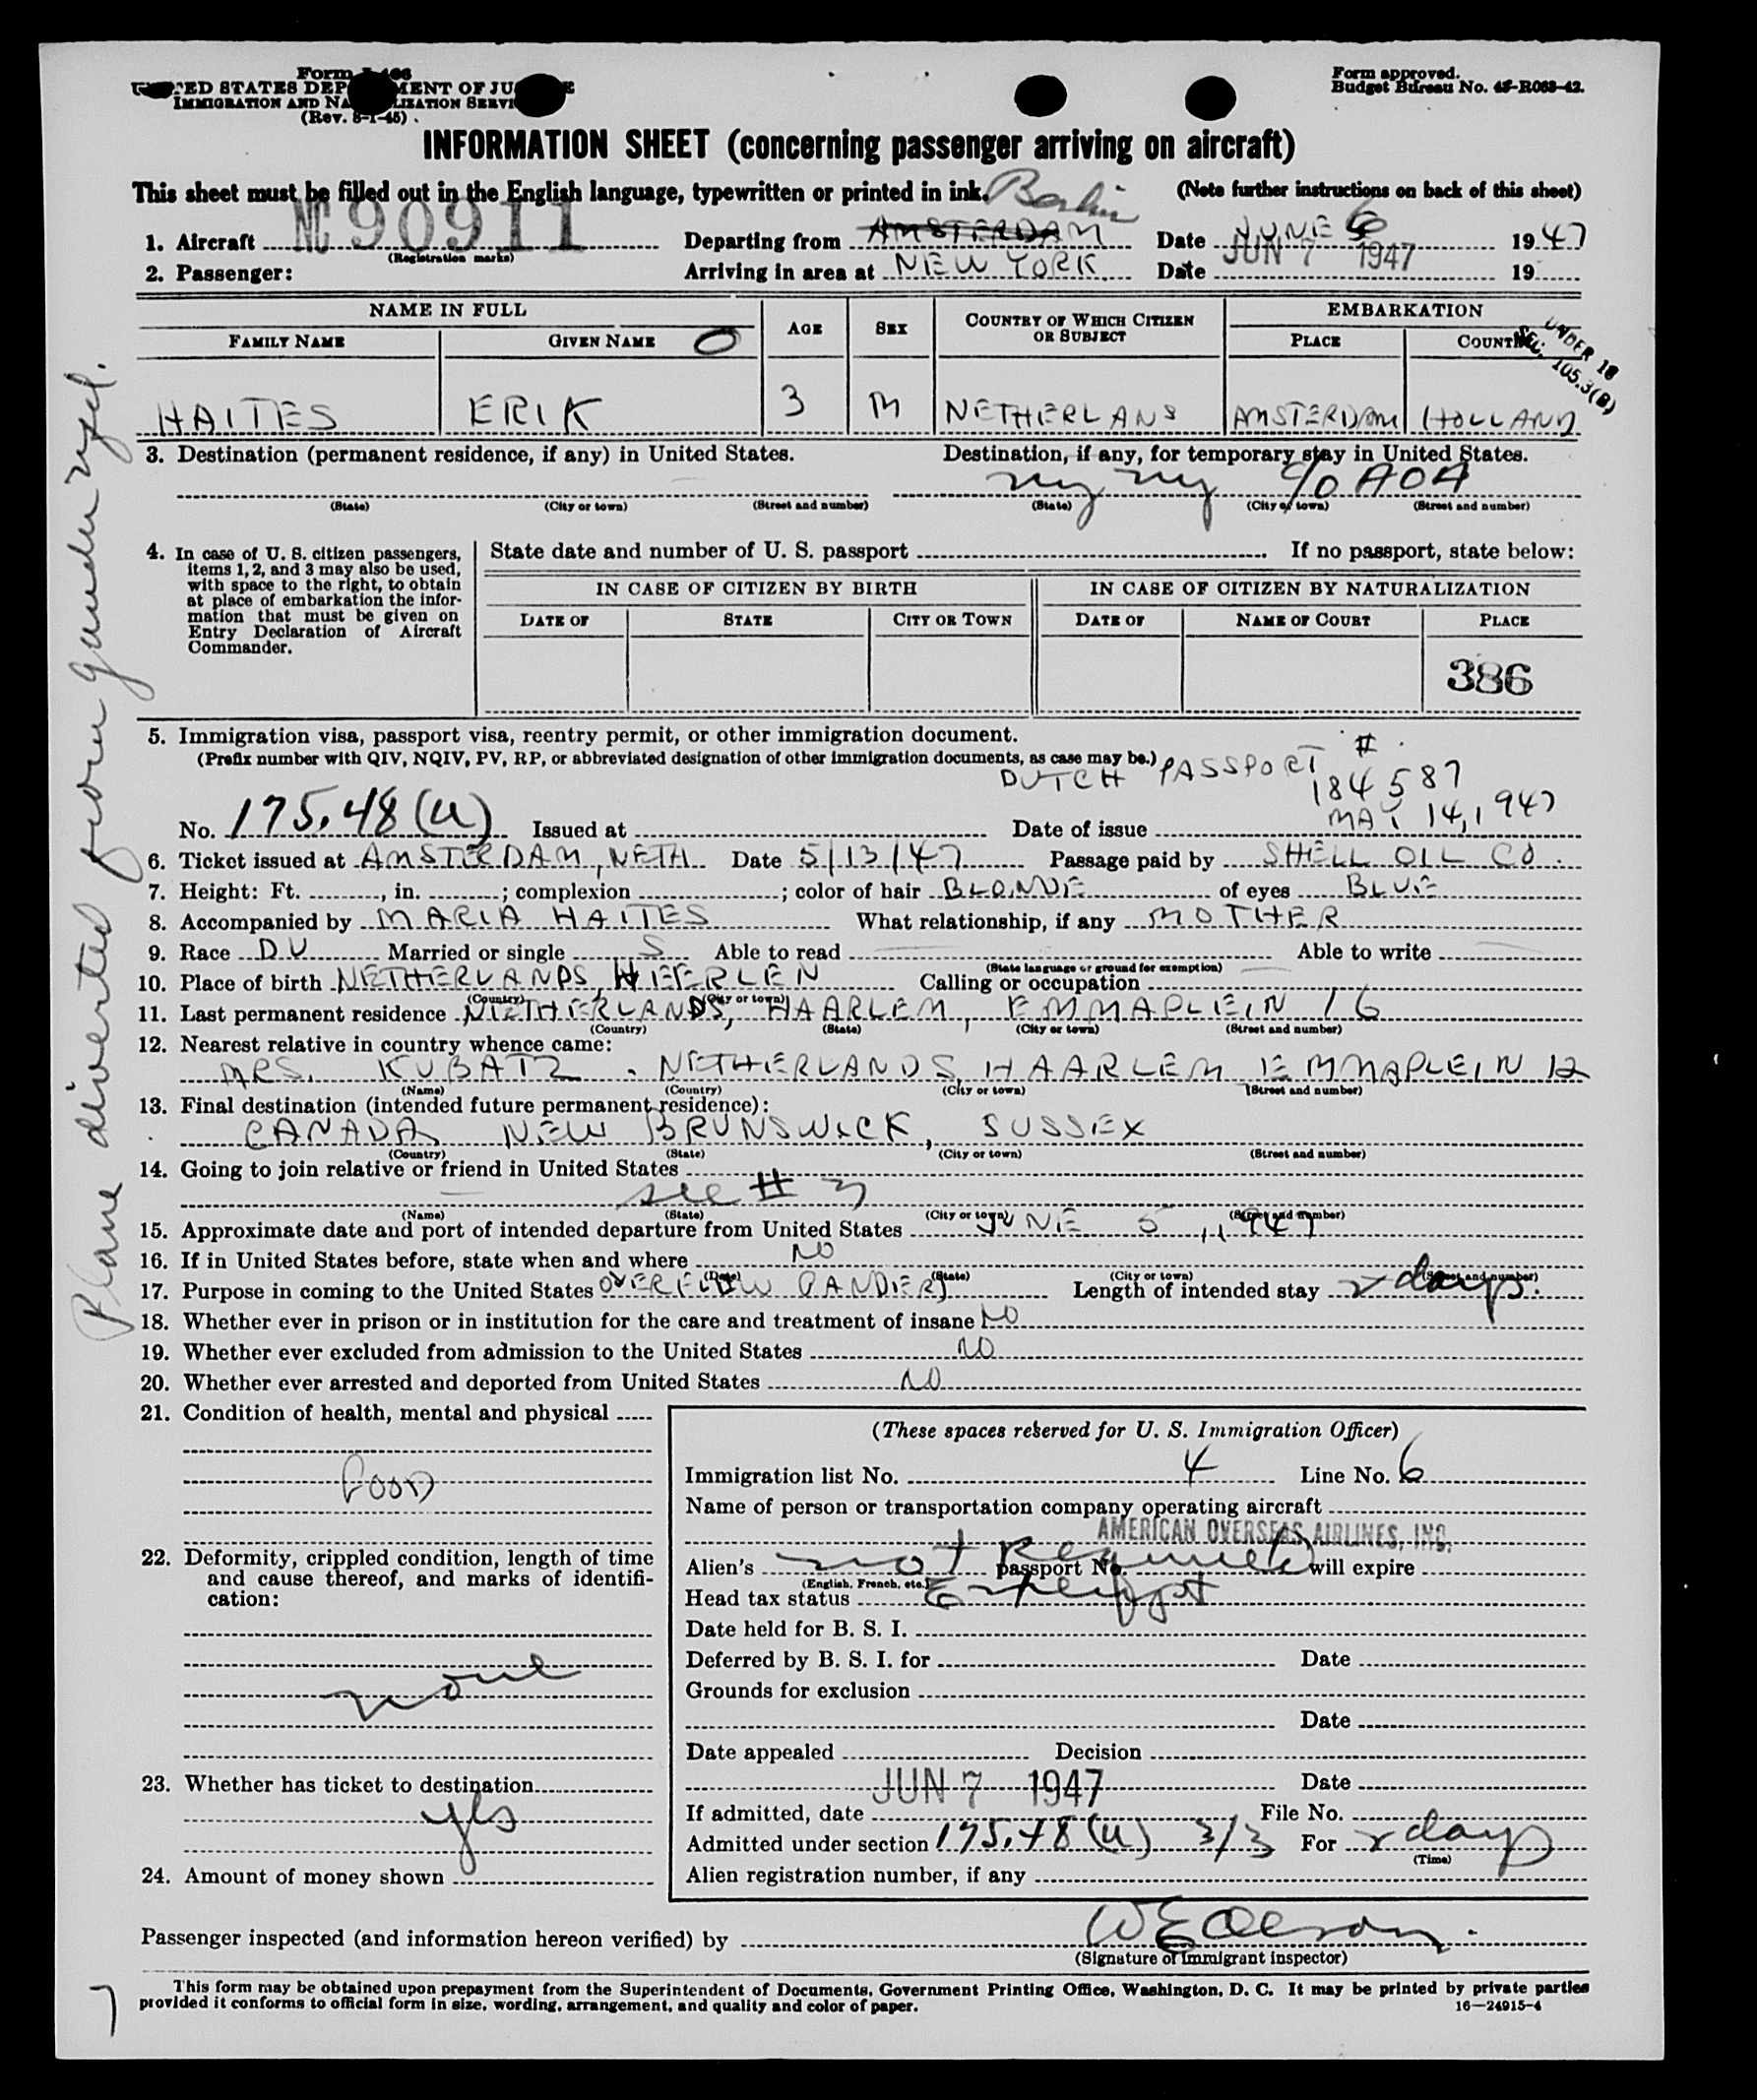 Form I-466
UNITED STATES DEPARTMENT OF JUSTICE
IMMIGRATION AND NATURALIZATION SERVICE
(Rev. 8-1-45)
Form approved.
Budget Bureau No. 43-R063-42.
INFORMATION SHEET (concerning passenger arriving on aircraft)
This sheet must be filled out in the English language, typewritten or printed in ink. (Note further instructions on back of this sheet)
Berlin
1. Aircraft NC 90911 Departing from AMSTERDAM Date JUNE 6 1947
(Registration marks)
2. Passenger: Arriving in area at NEW YORK Date JUN 7 1947 19
NAME IN FULL AGE SEX COUNTRY OF WHICH CITIZEN OR SUBJECT EMBARKATION
FAMILY NAME GIVEN NAME PLACE COUNTRY
UNDER 18
SEC. 105.3(B)
HAITES ERIK 3 M NETHERLANS AMSTERDAM HOLLAND
3. Destination (permanent residence, if any) in United States. Destination, if any, for temporary stay in United States.
NY NY c/o AOA
(State) (City or town) (Street and number) (State) (City or town) (Street and number)
4. In case of U. S. citizen passengers, items 1, 2, and 3 may also be used, with space to the right, to obtain at place of embarkation the information that must be given on Entry Declaration of Aircraft Commander.
State date and number of U. S. passport If no passport, state below:
IN CASE OF CITIZEN BY BIRTH IN CASE OF CITIZEN BY NATURALIZATION
DATE OF STATE CITY OR TOWN DATE OF NAME OF COURT PLACE
386
5. Immigration visa, passport visa, reentry permit, or other immigration document.
(Prefix number with QIV, NQIV, PV, RP, or abbreviated designation of other immigration documents, as case may be.)
DUTCH PASSPORT #
184587
No. 175.48(U) Issued at Date of issue MAY 14, 1947
6. Ticket issued at AMSTERDAM, NETH Date 5/13/47 Passage paid by SHELL OIL CO.
7. Height: Ft. , in. ; complexion ; color of hair BLONDE of eyes BLUE
8. Accompanied by MARIA HAITES What relationship, if any MOTHER
9. Race DU Married or single S Able to read Able to write
(State language or ground for exemption)
10. Place of birth NETHERLANDS, HEERLEN Calling or occupation
(Country) (City or town)
11. Last permanent residence NETHERLANDS, HAARLEM, EMMAPLEIN 16
(Country) (State) (City or town) (Street and number)
12. Nearest relative in country whence came:
MRS. KUBATZ. NETHERLANDS HAARLEM EMMAPLEIN 12
(Name) (Country) (City or town) (Street and number)
13. Final destination (intended future permanent residence):
CANADA NEW BRUNSWICK, SUSSEX
(Country) (State) (City or town) (Street and number)
14. Going to join relative or friend in United States
see # 3
(Name) (State) (City or town) (Street and number)
15. Approximate date and port of intended departure from United States JUNE 5, 1947
16. If in United States before, state when and where NO
(Date) (State) (City or town) (Street and number)
17. Purpose in coming to the United States OVERFLOW Length of intended stay 2 days.
18. Whether ever in prison or in institution for the care and treatment of insane NO
19. Whether ever excluded from admission to the United States NO
20. Whether ever arrested and deported from United States NO
21. Condition of health, mental and physical
GOOD
22. Deformity, crippled condition, length of time and cause thereof, and marks of identification:
none
23. Whether has ticket to destination
yes
24. Amount of money shown
(These spaces reserved for U. S. Immigration Officer)
Immigration list No. 4 Line No. 6
Name of person or transportation company operating aircraft
AMERICAN OVERSEAS AIRLINES, INC.
Alien's not Required passport No. will expire
(English, French, etc.)
Head tax status Exempt
Date held for B. S. I.
Deferred by B. S. I. for Date
Grounds for exclusion
Date
Date appealed Decision
Date
If admitted, date JUN 7 1947 File No.
Admitted under section 175.48(U) 3/3 For 2 days
(Time)
Alien registration number, if any
Passenger inspected (and information hereon verified) by
(Signature of immigrant inspector)
This form may be obtained upon prepayment from the Superintendent of Documents, Government Printing Office, Washington, D. C. It may be printed by private parties
provided it conforms to official form in size, wording, arrangement, and quality and color of paper.
16—24915-4
Plane diverted from Gander nfld.